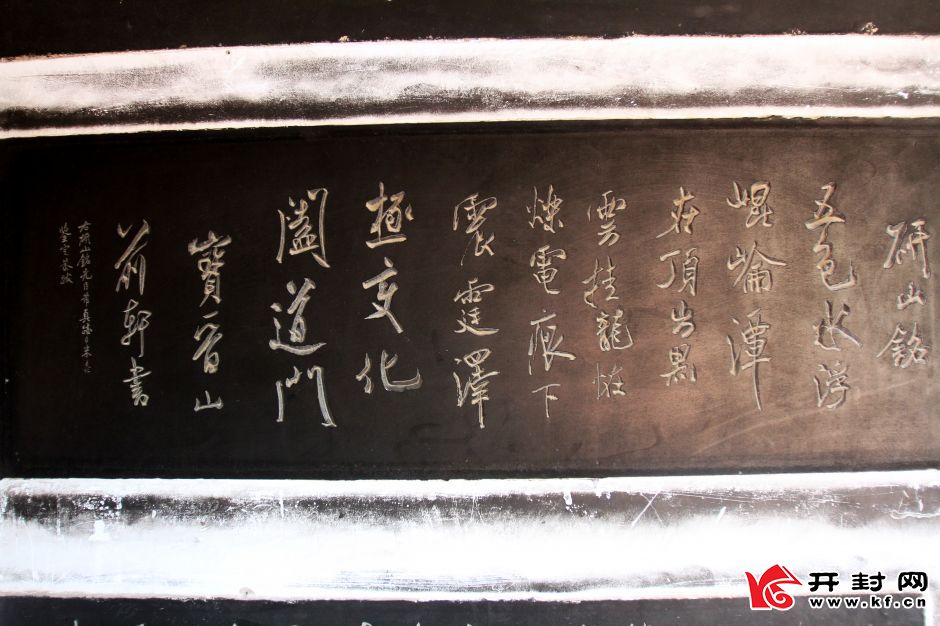 研山銘
五色水浮
崐崘潭
在頂出黑
雲挂龍恠
爍電痕下
震霆澤
極變化
闔道門
寶晉山
前軒書
右研山銘
开封网
www.kf.cn